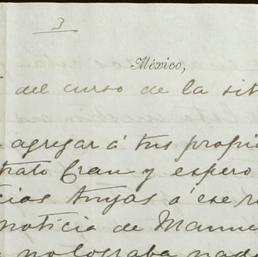 3
México,
del curso de la sit
agregar á tus propi
trato Cran y espero
cias tuyas á ese r
noticia de Manue
nolograba nada